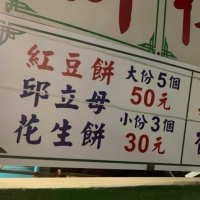 紅豆餅 大份5個
50元
邱立母
花生餅 小份3個
30元